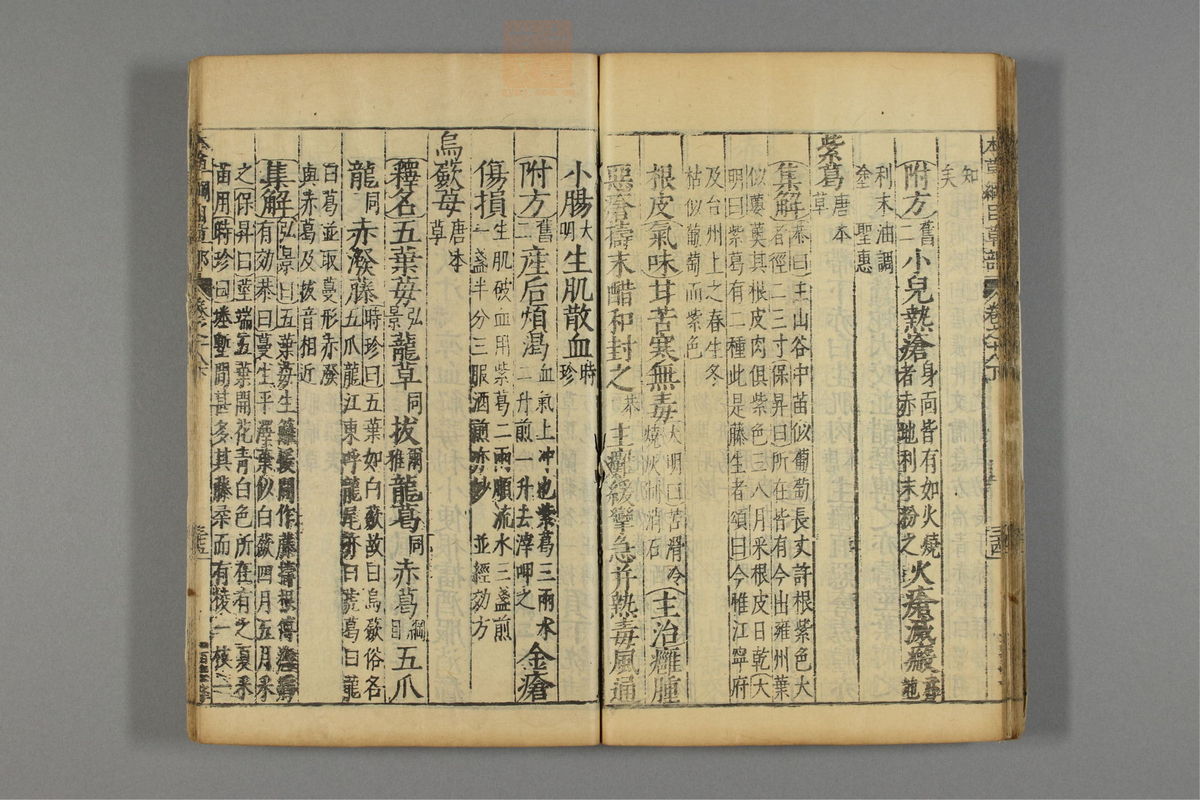 本草綱目草部 卷之十八下
知
矣
附方舊二小兒熱瘡身面皆有如火燒者赤地利末粉之火瘡滅瘢赤地
利末油調
塗 聖惠
紫葛唐本草
集解恭曰生山谷中苗似葡萄長丈許根紫色大者徑二三寸保昇曰所在皆有今出雍州葉
似蘡薁其根皮肉俱紫色三八月采根皮日乾大
明曰紫葛有二種此是藤生者頌曰今惟江寧府
及台州上之春生冬
枯似葡萄而紫色
根皮氣味甘苦寒無毒大明曰苦滑冷燒灰制消石主治癰腫
惡瘡擣末醋和封之恭主癱緩攣急并熱毒風通
小腸大明生肌散血時珍
附方舊二產后煩渴血氣上冲也紫葛三兩水二升煎一升去滓呷之金瘡
傷損生肌破血用紫葛二兩順流水三盞煎一盞半分三服酒煎亦妙 並經効方
烏蘞莓唐本草
釋名五葉莓弘景蘢草同拔爾雅蘢葛同赤葛綱目五爪
龍同赤潑藤時珍曰五葉如白蘞故曰烏蘞俗名五爪龍江東呼龍尾亦曰虎葛曰龍
曰葛並取蔓形赤潑
與赤葛及拔音相近
集解弘景曰五葉莓生籬援間作藤擣根傅癰癤有効恭曰蔓生平澤葉似白蘞四月五月采
之保昇曰莖端五葉開花青白色所在有之夏采
苗用時珍曰塍塹間甚多其藤柔而有稜一枝一